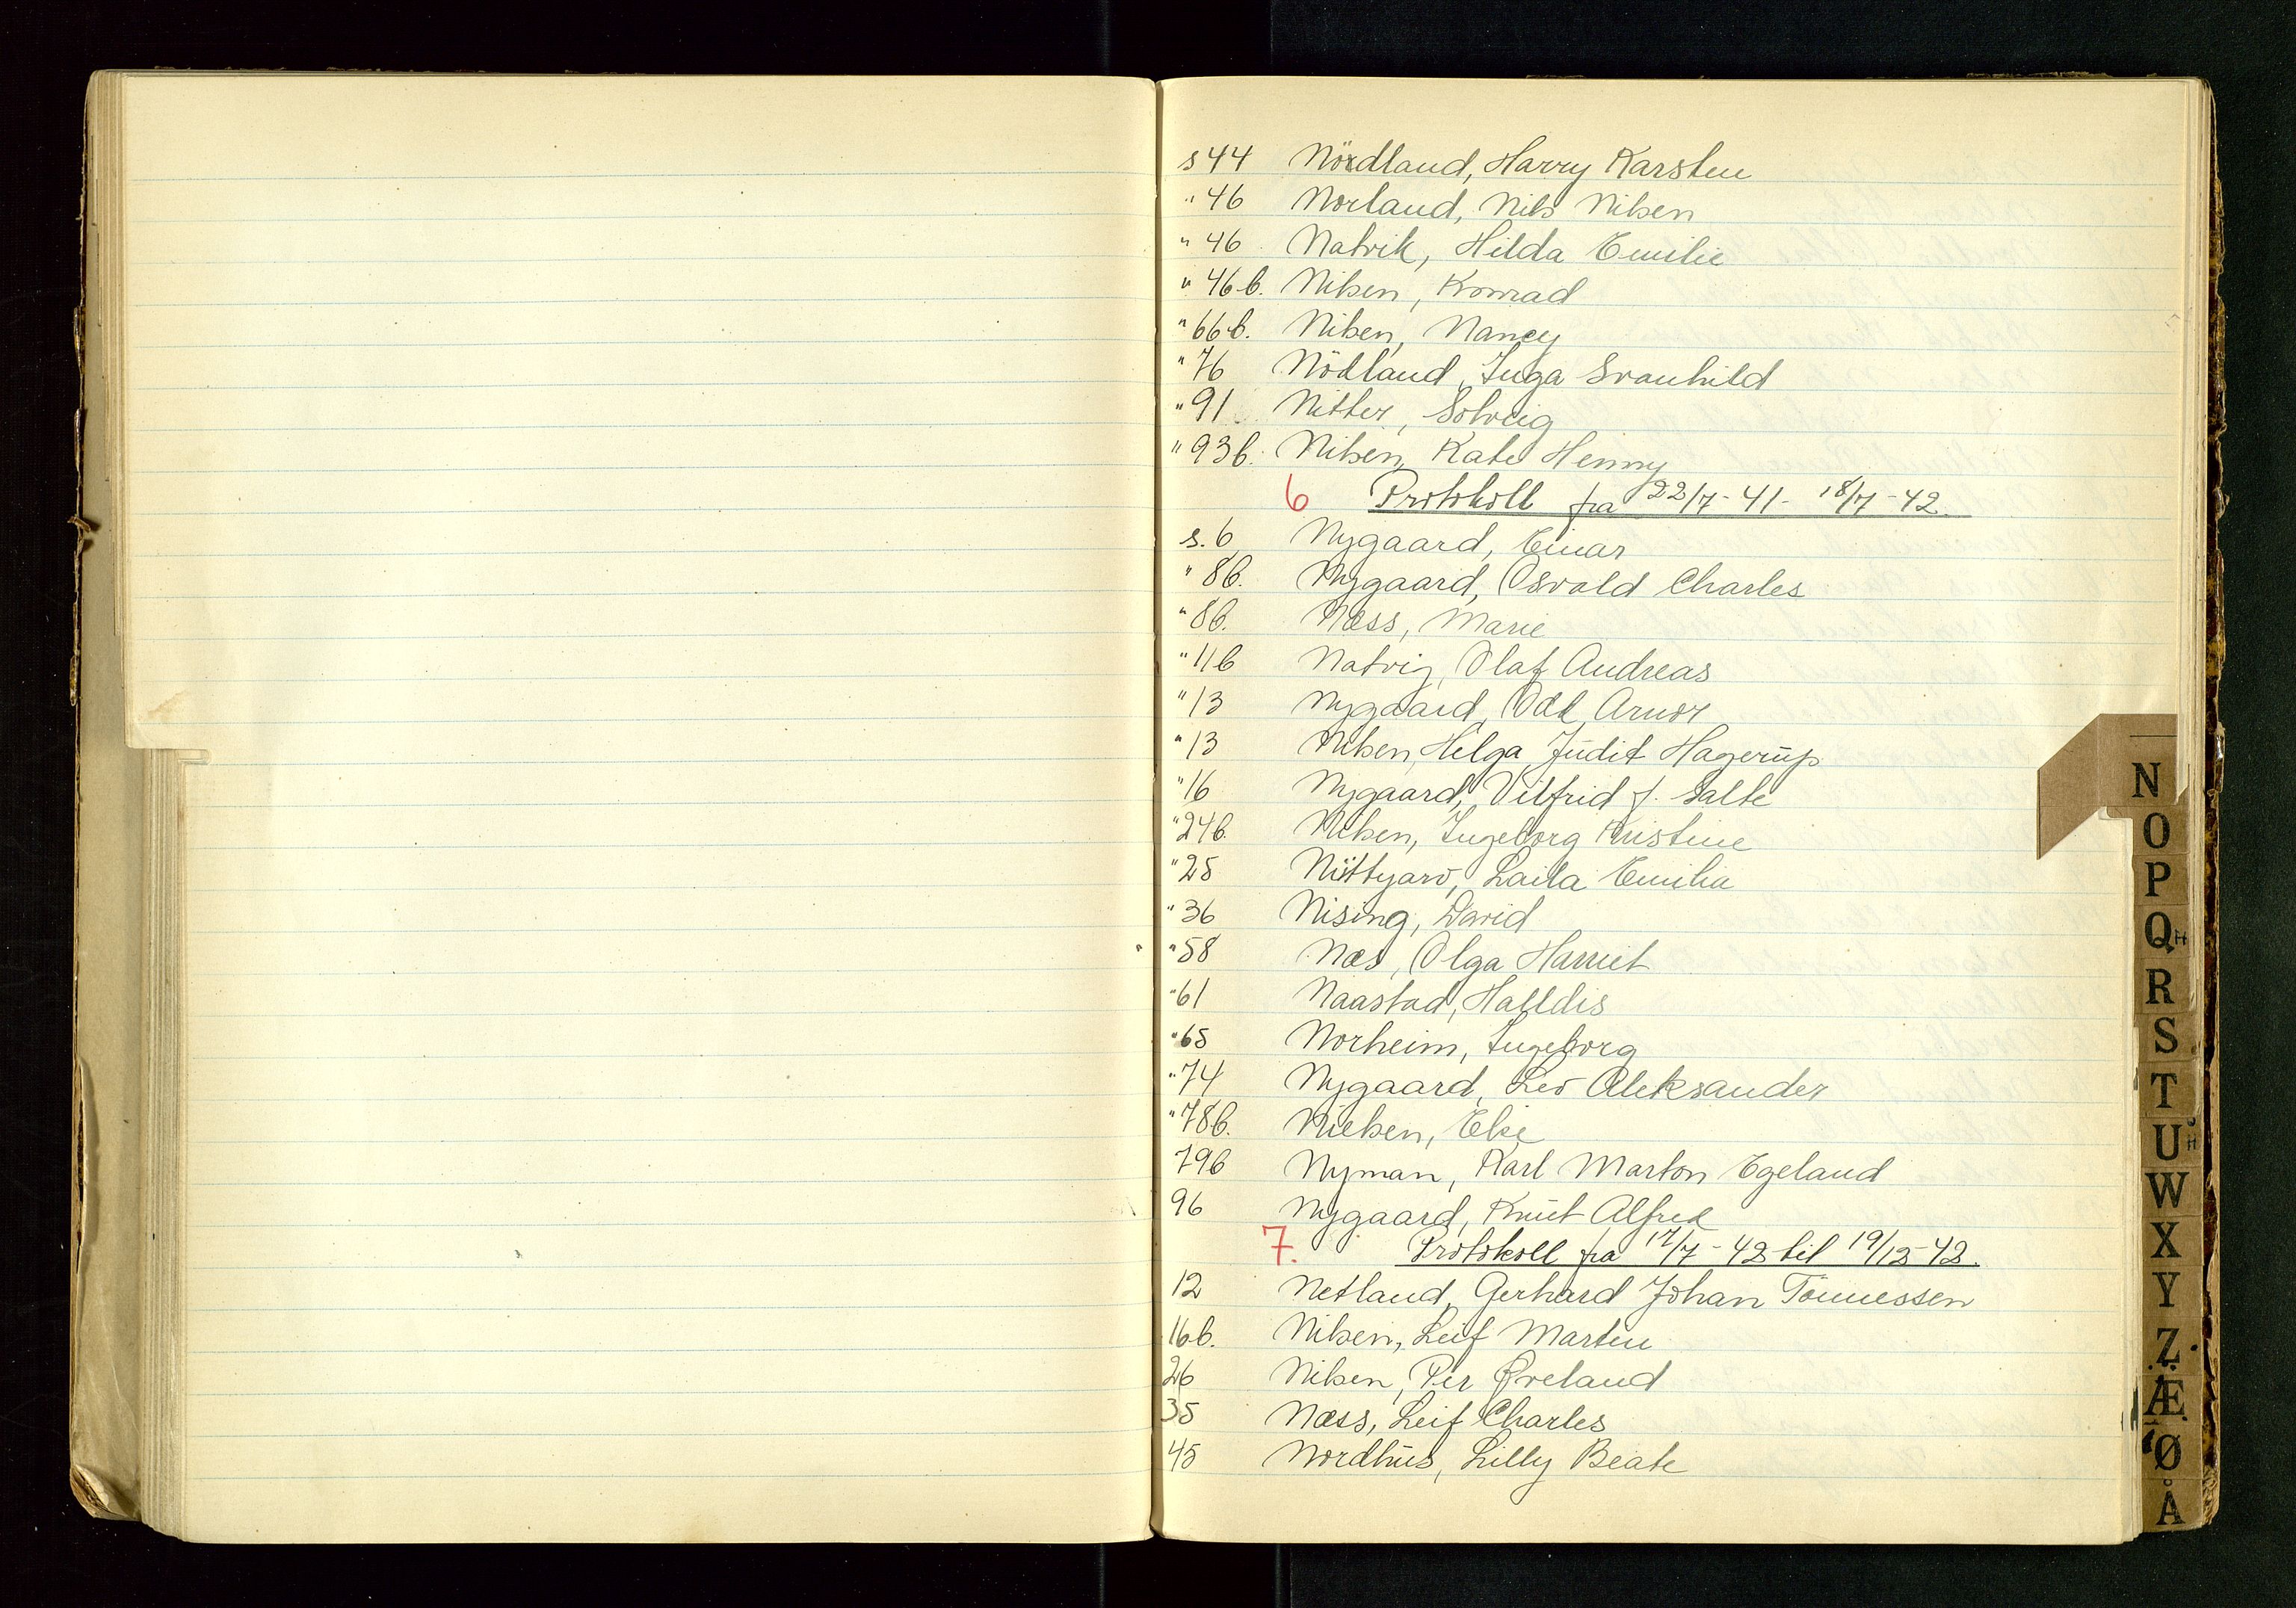 s 44 Nördland, Harry Karsten
" 46 Norland, Nils Nilsen
" 46 Natvik, Hilda Emilie
" 46 b. Nilsen, Konrad
" 66 b. Nilsen, Nancy
" 76 Nödland, Inga Svanhild
" 91 Nitter, Solveig
" 93 b. Nilsen, Kate Henny
6 Protokoll fra 22/7 - 41 - 18/7 - 42.
s. 6 Nygaard, Einar
" 8 b. Nygaard, Osvald Charles
" 8 b. Næss, Marie
" 11 b Natvig, Olaf Andreas
" 13 Nygaard, Odd Arnor
" 13 Nilsen, Helga Judit Hagerup
" 16 Nygaard, Vilfrid f. Salte
" 24 b. Nilsen, Ingeborg Kristine
" 25 Laila Emilia
" 36 Nising, David
" 58 Næs, Olga Harriet
" 61 Naastad, Halldis
" 65 Norheim, Ingeborg
" 74 Nygaard, Leo Aleksander
" 78 b. Nielsen, Else
79 b Nyman, Karl Marton Egeland
96 Nygaard, Knut Alfred
7. Protokoll fra 17/7 - 42 til 19/12 - 42.
12 Netland, Gerhard Johan Tönnessen
16 b. Nilsen, Leif Martin
26 Nilsen, Per Øveland
35 Næss, Leif Charles
45 Nordhus, Lilly Beate
N
O
P
Q H
R
S
T
U H
W
X
Y
Z
Æ
Ø
Å